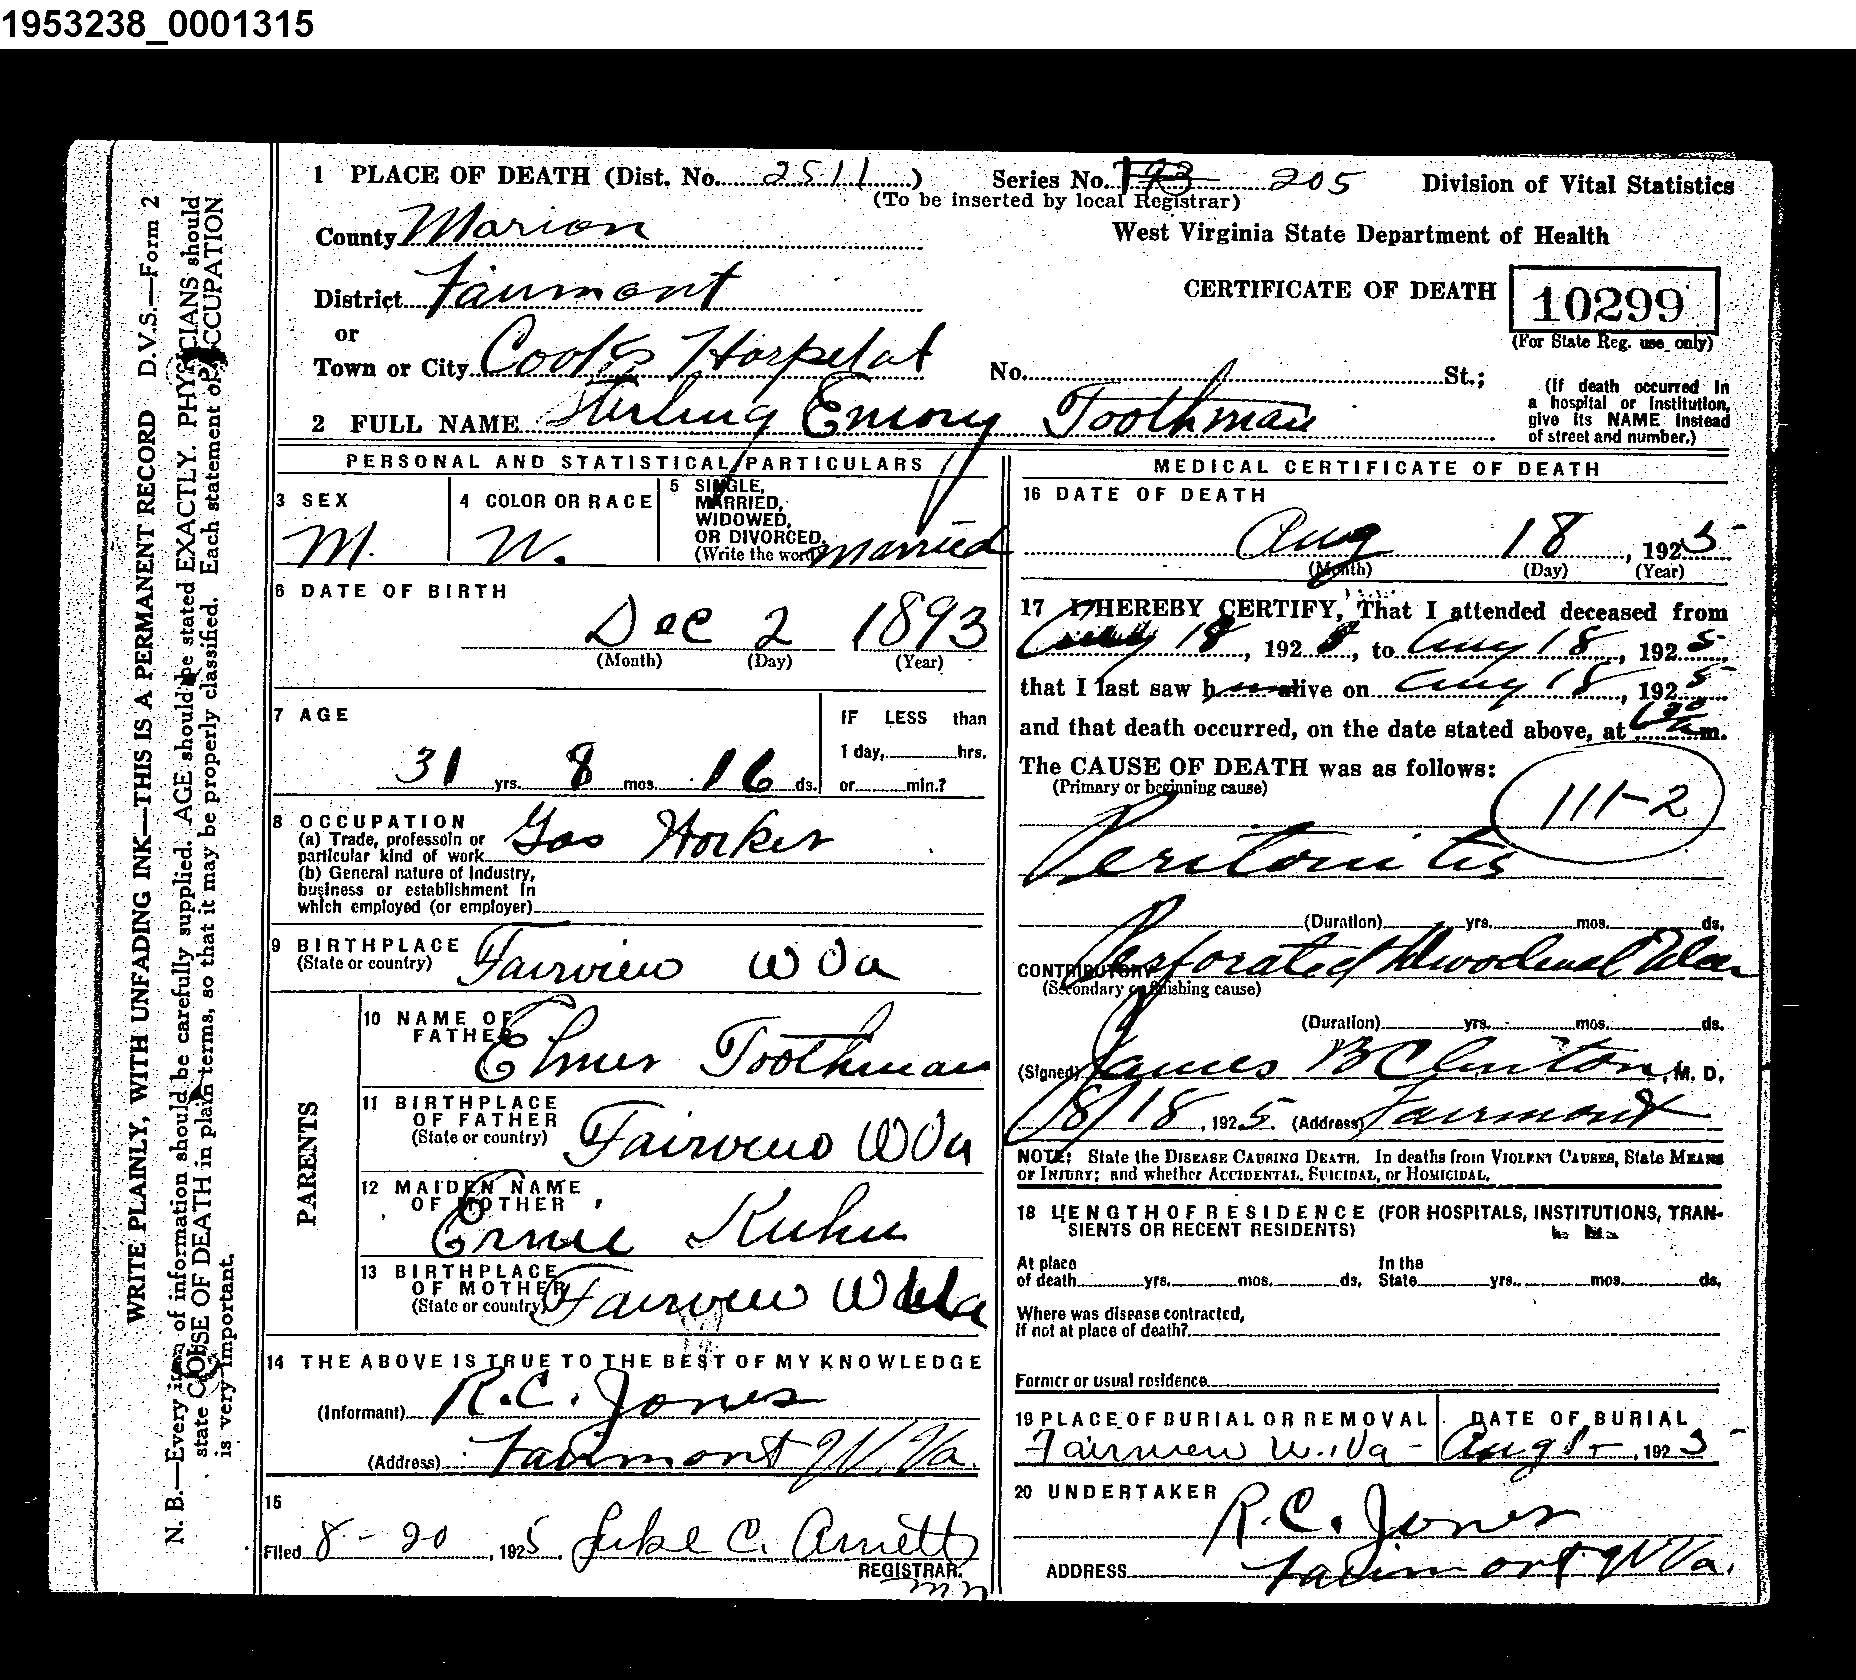 1953238_0001315
1 PLACE OF DEATH (Dist. No. 2511 ) Series No. 193 205 Division of Vital Statistics
(To be inserted by local Registrar)
County Marion
West Virginia State Department of Health
District Fairmont
CERTIFICATE OF DEATH 10299
(For State Reg. use only)
or
Town or City Cook's Hospital No. St.;
(If death occurred in
a hospital or institution,
give its NAME instead
of street and number.)
2 FULL NAME Sterling Emory Toothman
PERSONAL AND STATISTICAL PARTICULARS
3 SEX
M.
4 COLOR OR RACE
W.
5 SINGLE,
MARRIED,
WIDOWED,
OR DIVORCED
(Write the word) Married
6 DATE OF BIRTH
Dec 2 1893
(Month) (Day) (Year)
7 AGE
31 yrs. 8 mos. 16 ds.
IF LESS than
1 day, hrs.
or min.?
8 OCCUPATION
(a) Trade, professoin or
particular kind of work Gas Worker
(b) General nature of Industry,
business or establishment in
which employed (or employer)
9 BIRTHPLACE
(State or country) Fairview W Va
PARENTS
10 NAME OF
FATHER
Elmer Toothman
11 BIRTHPLACE
OF FATHER
(State or country) Fairview W Va
12 MAIDEN NAME
OF MOTHER
Ernie Kuhn
13 BIRTHPLACE
OF MOTHER
(State or country) Fairview W Va
14 THE ABOVE IS TRUE TO THE BEST OF MY KNOWLEDGE
(Informant) R.C. Jones
(Address) Fairmont W. Va.
15
Filed 8-20, 1925. Luke C. Arnett
REGISTRAR.
MEDICAL CERTIFICATE OF DEATH
16 DATE OF DEATH
Aug 18, 1925
(Month) (Day) (Year)
17 I HEREBY CERTIFY, That I attended deceased from
Aug 18, 192 , to Aug 18, 1925,
that I last saw h alive on Aug 18, 1925
and that death occurred, on the date stated above, at m.
The CAUSE OF DEATH was as follows:
(Primary or beginning cause)
111-2
Peritonitis
(Duration) yrs. mos. ds.
CONTRIBUTORY Perforated Duodenal Ulcer
(Secondary or finishing cause)
(Duration) yrs. mos. ds.
(Signed) James B Clinton, M. D.
8/18, 1925. (Address) Fairmont
NOTE: State the DISEASE CAUSING DEATH. In deaths from VIOLENT CAUSES, State MEANS
OF INJURY; and whether ACCIDENTAL, SUICIDAL, or HOMICIDAL.
18 LENGTH OF RESIDENCE (FOR HOSPITALS, INSTITUTIONS, TRAN-
SIENTS OR RECENT RESIDENTS)
At place
of death yrs. mos. ds.
In the
State yrs. mos. ds.
Where was disease contracted,
if not at place of death?
Former or usual residence
19 PLACE OF BURIAL OR REMOVAL
Fairview W. Va -
DATE OF BURIAL
Aug , 1925
20 UNDERTAKER
R.C. Jones
ADDRESS Fairmont W Va.
D.V.S.—Form 2
WRITE PLAINLY, WITH UNFADING INK—THIS IS A PERMANENT RECORD
N. B.—Every item of information should be carefully supplied. AGE should be stated EXACTLY. PHYSICIANS should
state CAUSE OF DEATH in plain terms, so that it may be properly classified. Each statement of OCCUPATION
is very important.